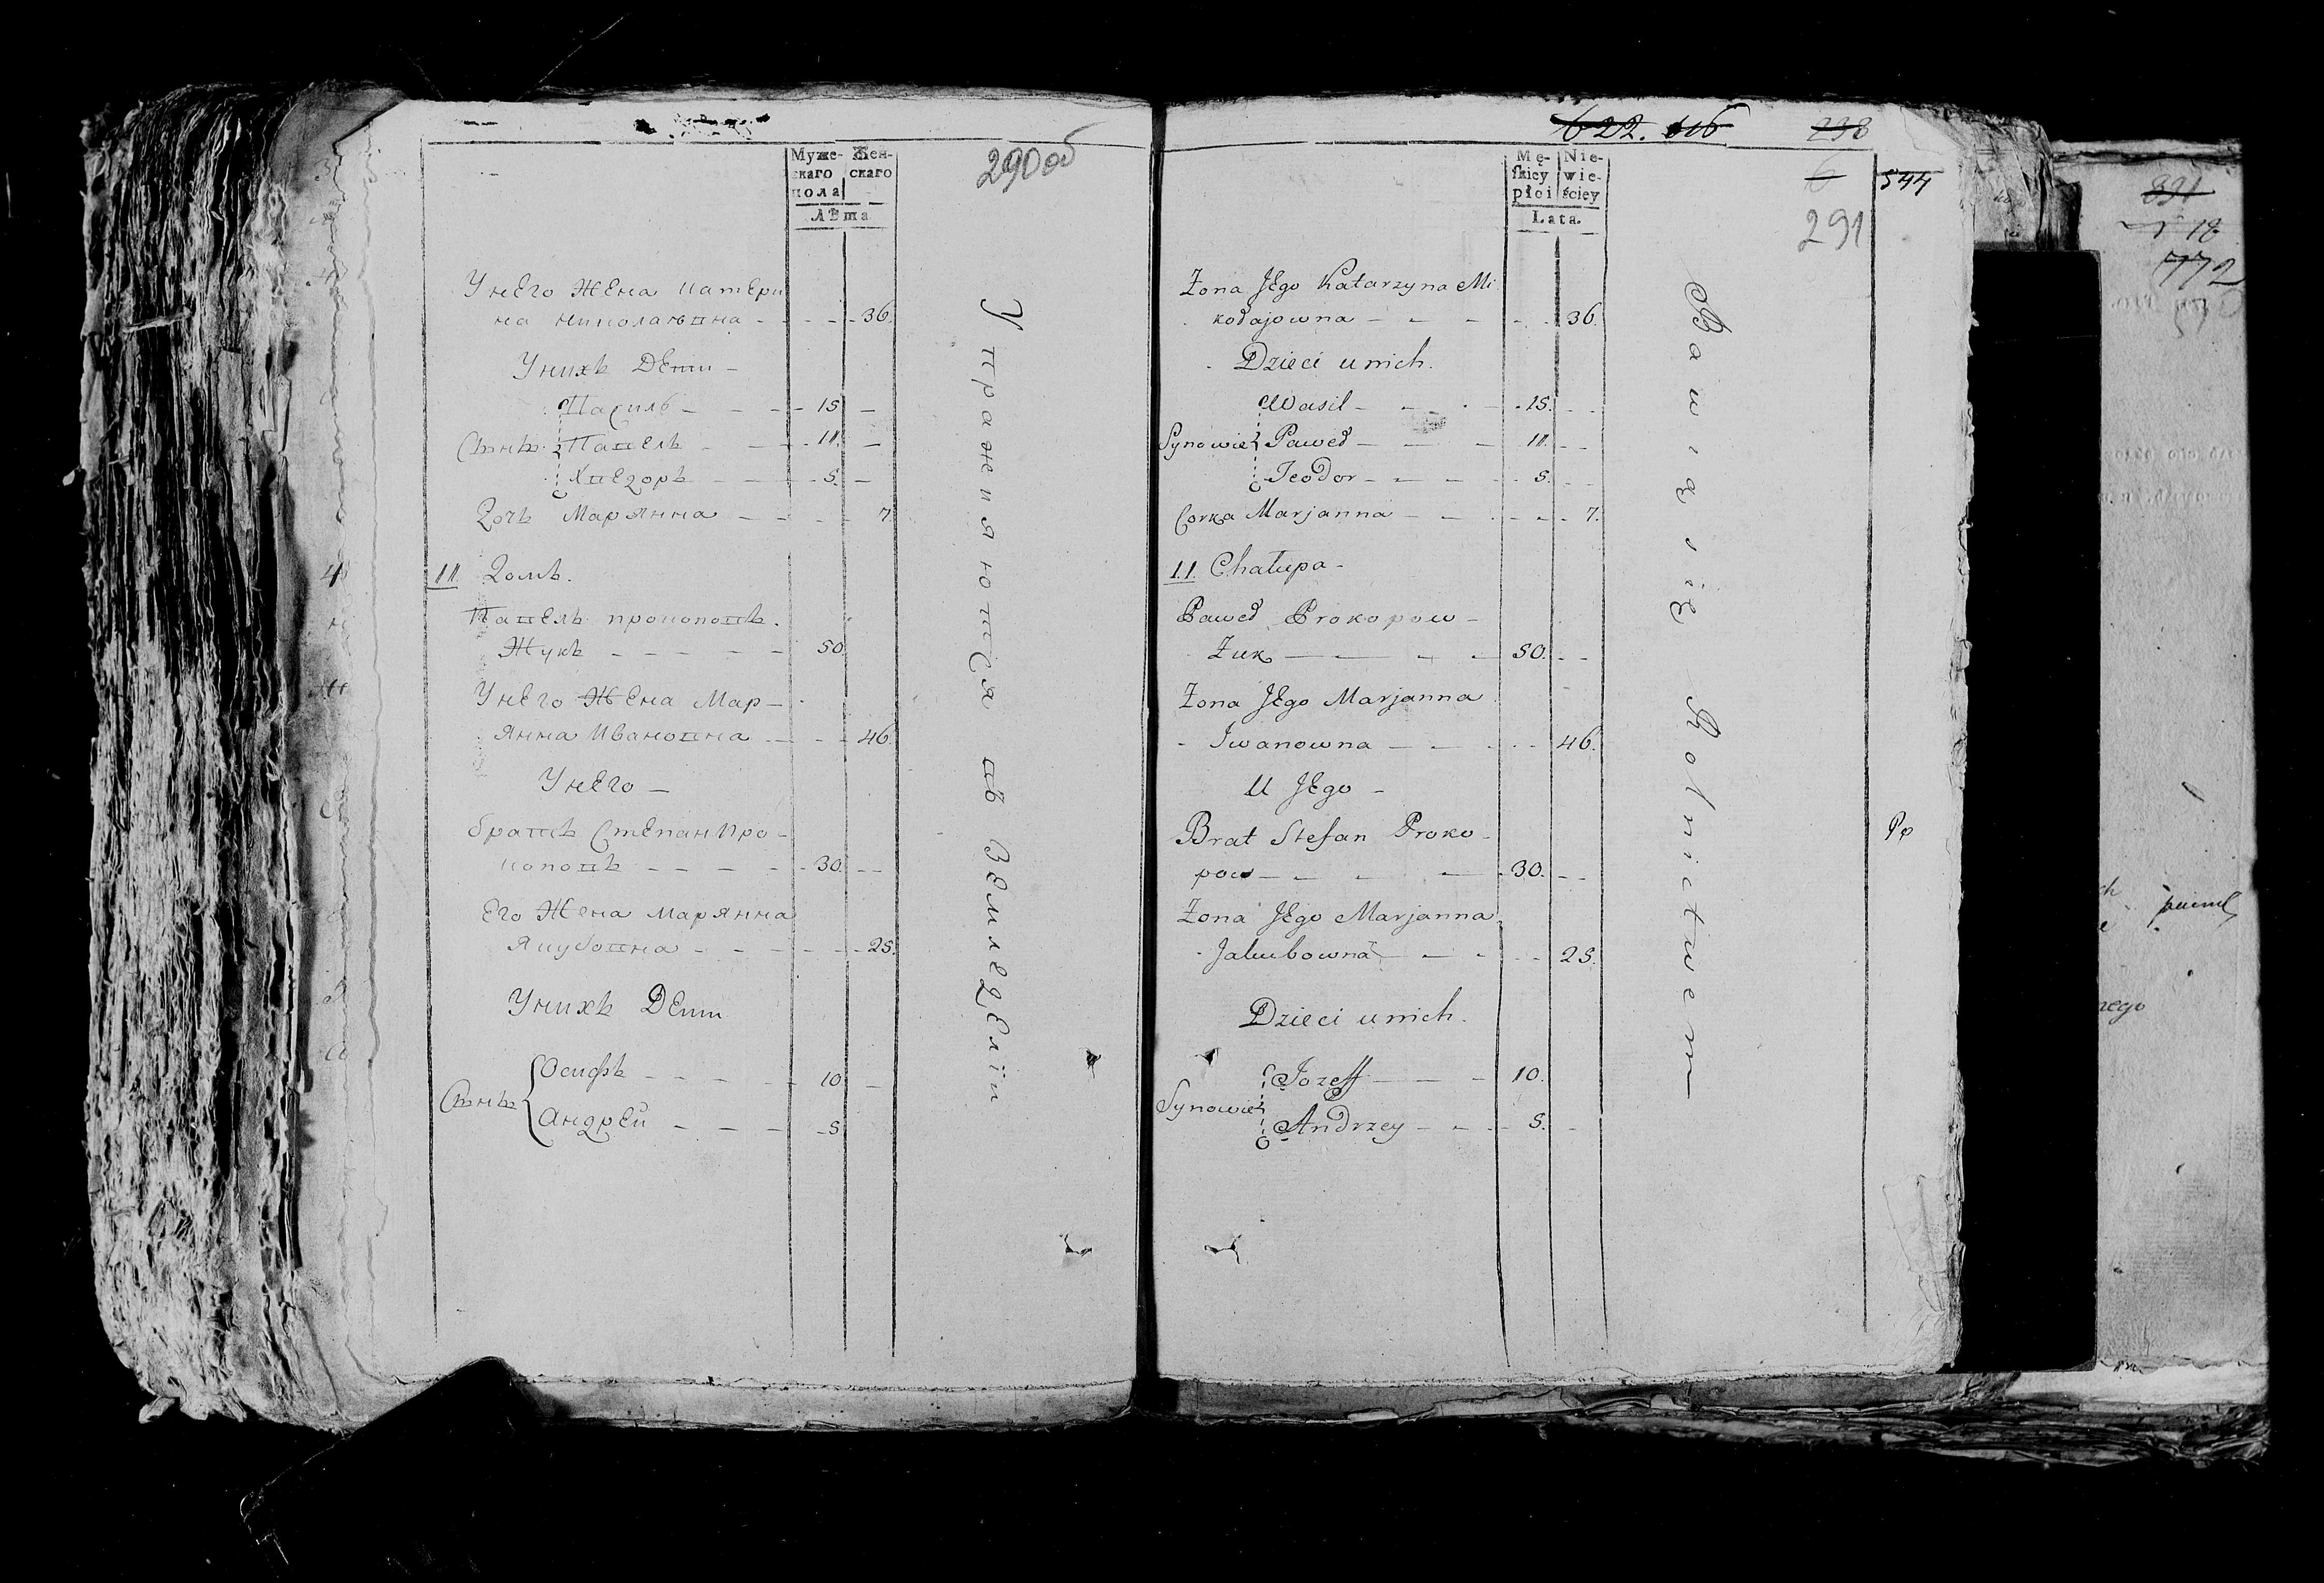 290 об
Муже-
скаго
пола
Жен-
скаго
Лѣта
У нЕго жЕна катЕри
на николаЕвна - - - 36.
У нихъ ДЕти -
Василь - - - 15 -
Сынъ Павелъ - - 11. -
ХвЕдоръ - - - 5. -
Дочь Маръянна - - - 7.
11. Домъ.
ПавЕлъ прокоповъ.
Жукъ - - - - - 50.
У нЕго ЖЕна Мар-
янна Ивановна - - - 46.
У нЕго -
братъ СтЕпан Про-
коповъ - - - - 30. - -
Его Жена Марянна
Якубовна - - - - 25.
У нихъ ДЕти
Сынъ Осифъ - - - - 10. -
АндрЕй - - - - 5
Упражняются въ земледЕлїи
622. 116
298
6
544
291
Mę-
skiey
płci
Nie-
wie-
ściey
Lata.
Żona JEgo Katarzyna Mi
kołajowna - - - - 36.
Dzieci u nich.
Wasil - - - 15. - -
Synowie Paweł - - - 11. - -
Teodor - - - 5. - -
Corka Marjanna - - - 7.
11. Chałupa -
Paweł Prokopow -
Żuk - - - 50. - -
Żona JEgo Marjanna
Iwanowna - - - 46.
U JEgo -
Brat Stefan Proko-
pow - - - - 30. - -
Żona JEgo Marjanna
Jakubowna - - - 25.
Dzieci u nich.
Synowie Jozeff - - - 10.
Andrzey - - - 5. -
Bawią się Rolnictwem
Po
891
18
772
nego